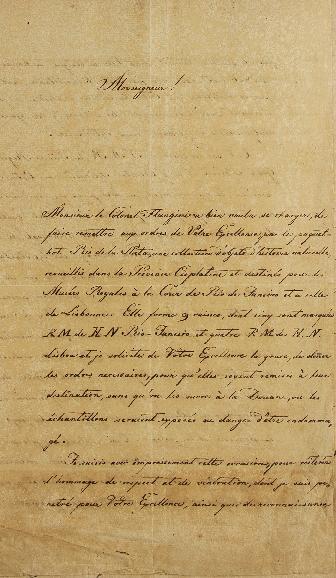 Monseigneur!
Monsieur le Colonel Flangini a bien voulu se charger, de
faire remettre aux ordres de Votre Excellence, par les paquet-
bot Rio de la Plata, une collection d'objets d'histoire naturelle,
recueillis dans la Province Cisplatine et destinés pour les
Musées Royales à la Cour de Rio de Janeiro et a celle
de Lisbonne. Elle forme 9 caisses, dont cinq sont marquées
R. M. de H. N. Rio-Janeiro et quatre R. M. de H. N.
Lisbon et je sollicite de Votre Excellence la grace, de donner
les ordres necessaires, pour qu'elles soyent remises à leur
destination, sans qu'on les ouvre à la Douane, où les
échantillons seraient exposés au danger d'être endomma-
gés.
Je saisis avec empressement cette occasion, pour réitérer
l'hommage de respect et de vénération, dont je suis pé-
nétré pour Votre Excellence, ainsi que de reconnaissance